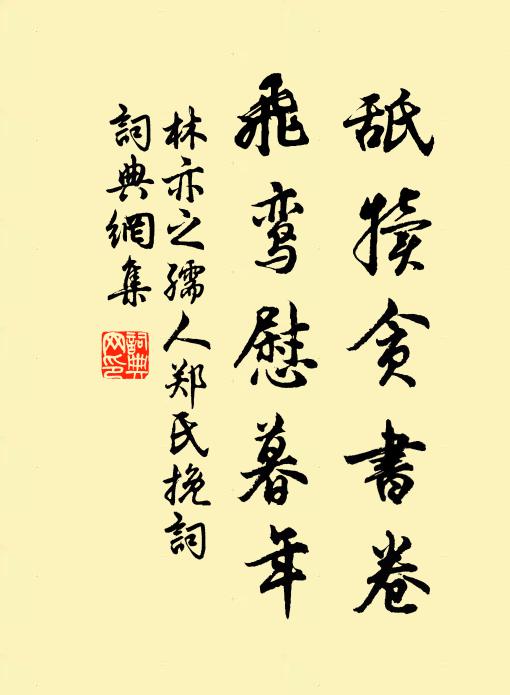 舐犊贪书卷
飞鸾慰暮年
林亦之孺人郑氏挽词
詞典網集
詞典網印